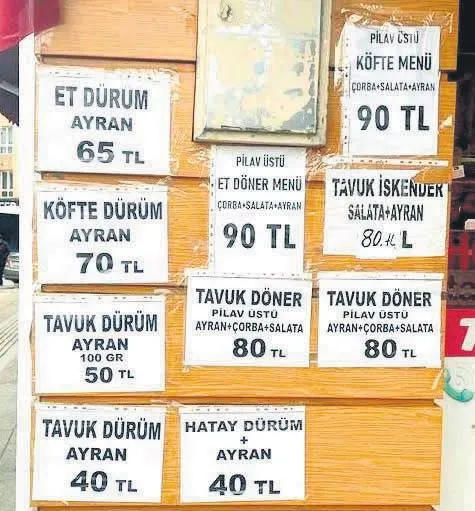 ET DÜRUM
AYRAN
65 TL
KÖFTE DÜRÜM
AYRAN
70 TL
TAVUK DÜRÜM
AYRAN
100 GR
50 TL
TAVUK DÜRÜM
AYRAN
40 TL
PİLAV ÜSTÜ
ET DÖNER MENÜ
ÇORBA+SALATA+AYRAN
90 TL
TAVUK DÖNER
PİLAV ÜSTÜ
AYRAN+ÇORBA+SALATA
80 TL
HATAY DÜRÜM
+
AYRAN
40 TL
PİLAV ÜSTÜ
KÖFTE MENÜ
ÇORBA+SALATA+AYRAN
90 TL
TAVUK İSKENDER
SALATA+AYRAN
80.TL L
TAVUK DÖNER
PİLAV ÜSTÜ
AYRAN+ÇORBA+SALATA
80 TL
T